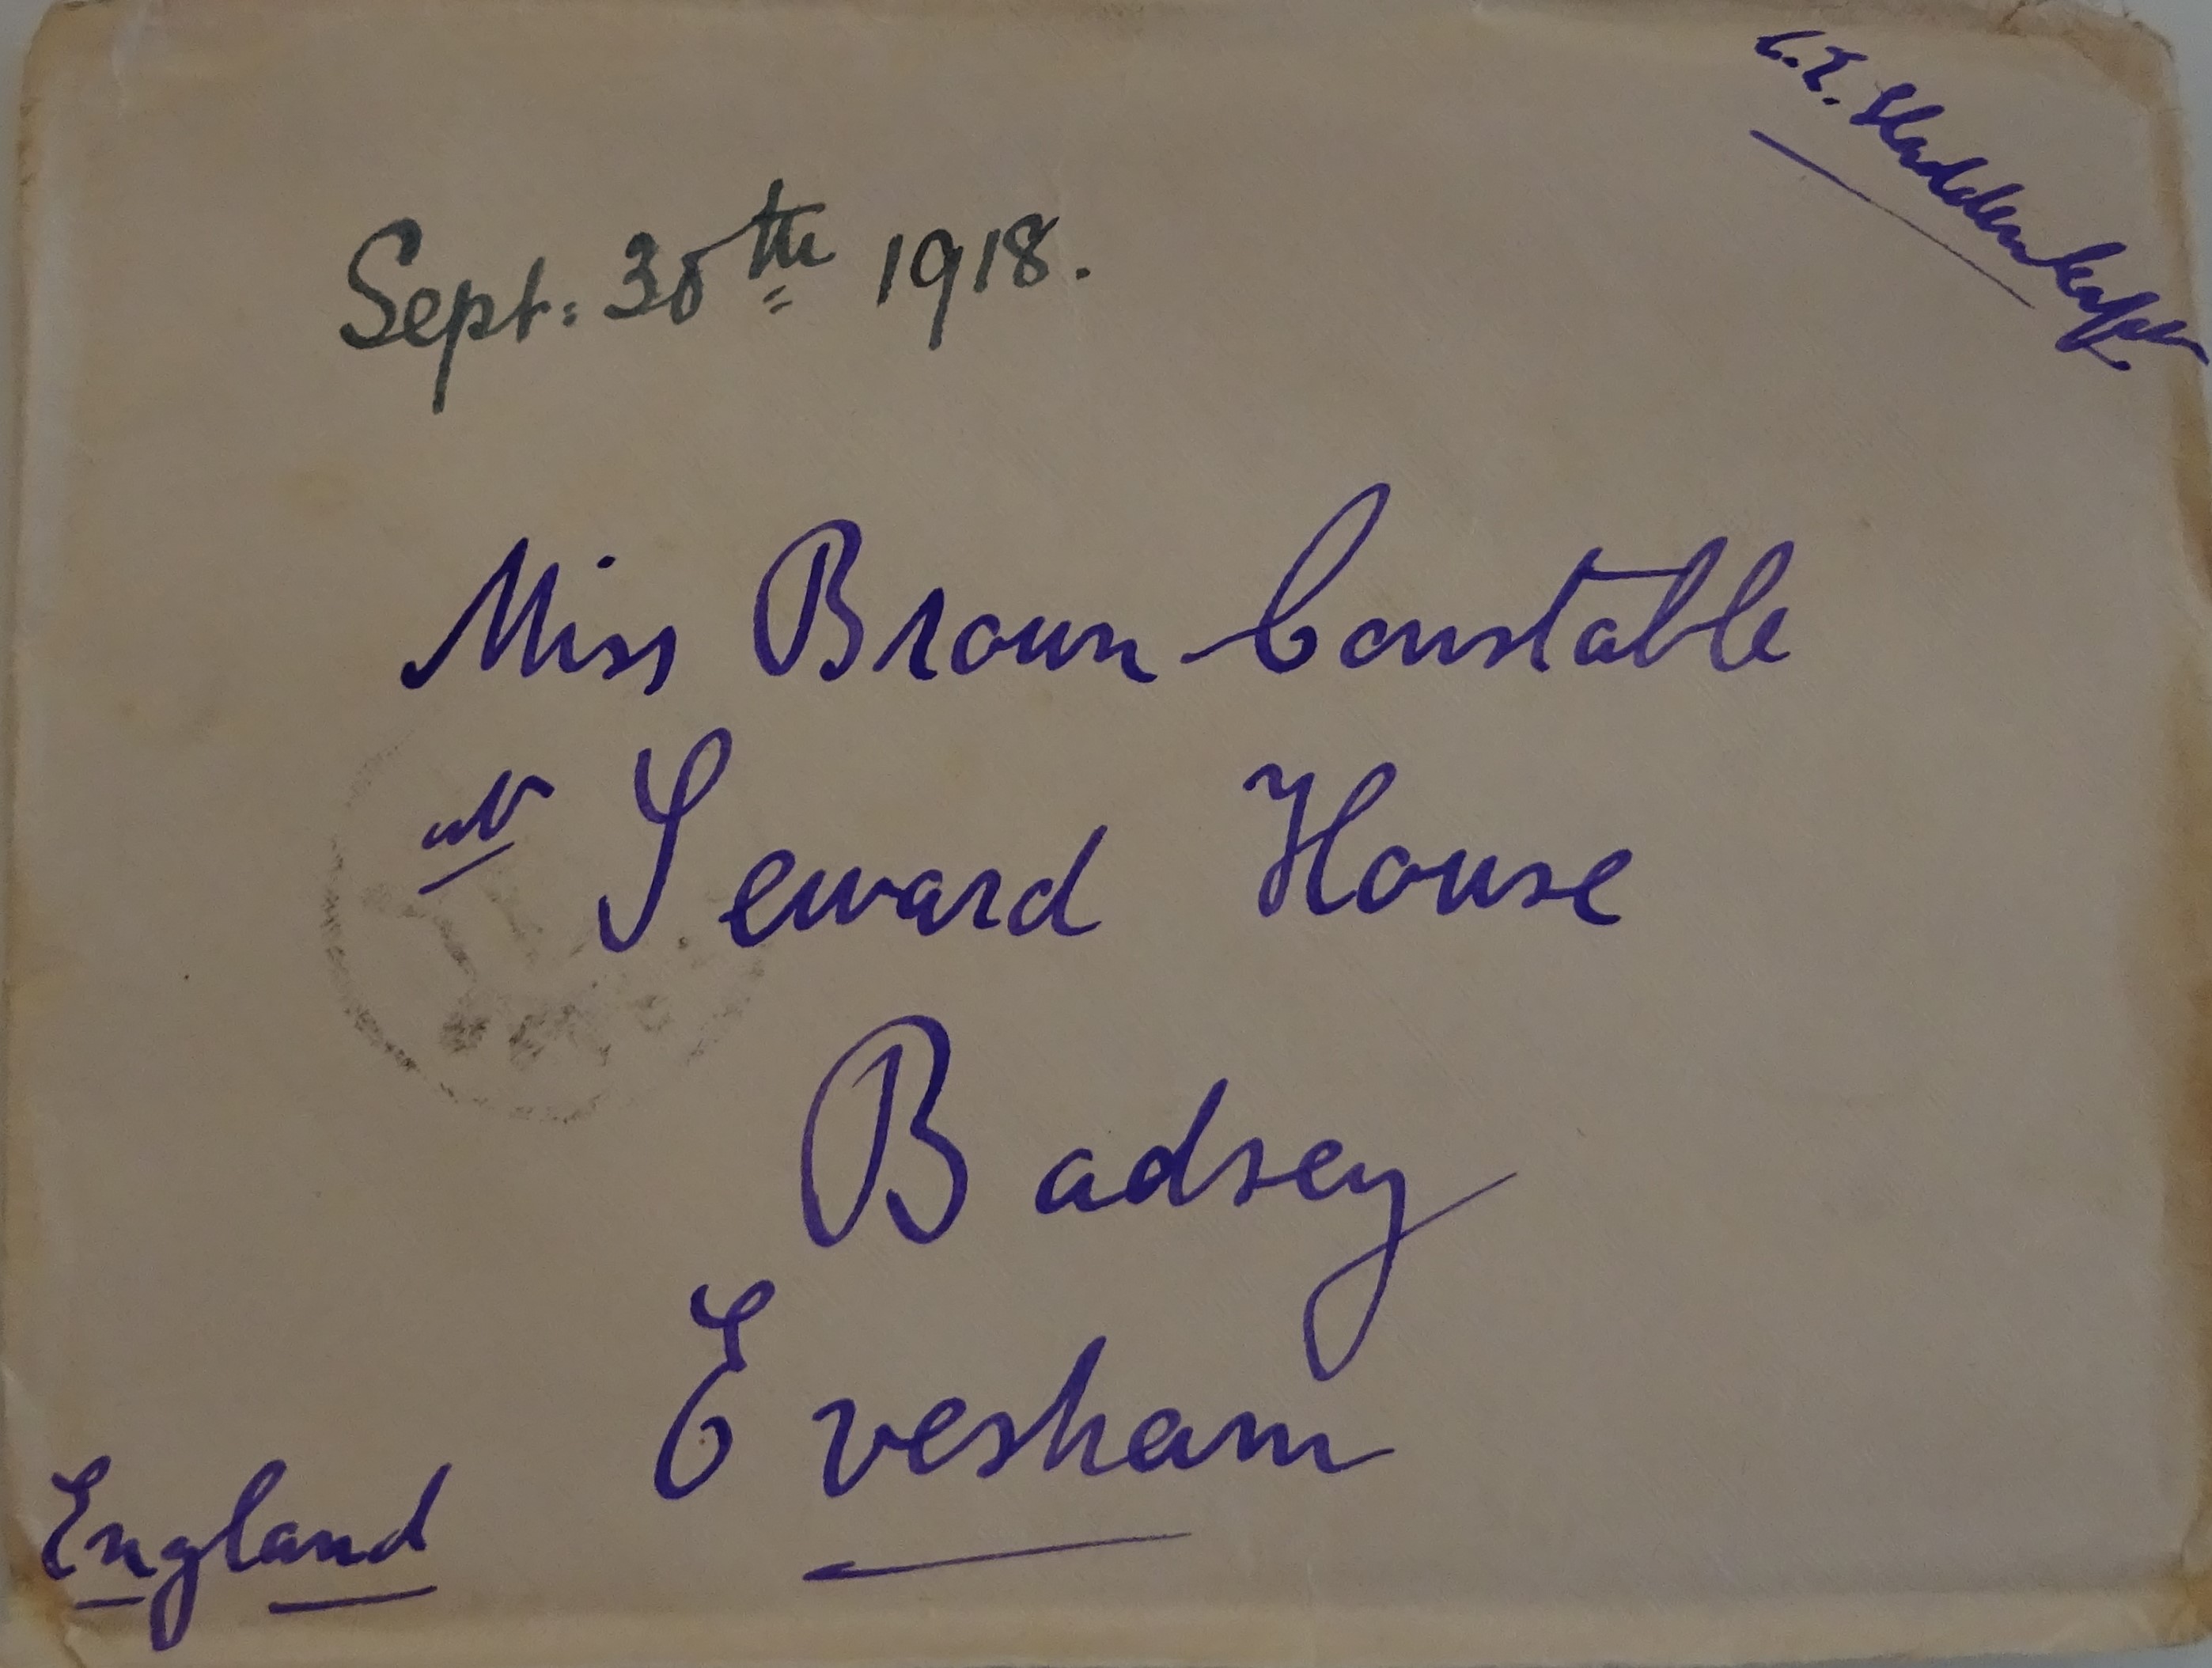 C.E. Sladden Capt.
Sept. 30th 1918.
Miss Brown-Constable
at Seward House
Badsey
Evesham
England